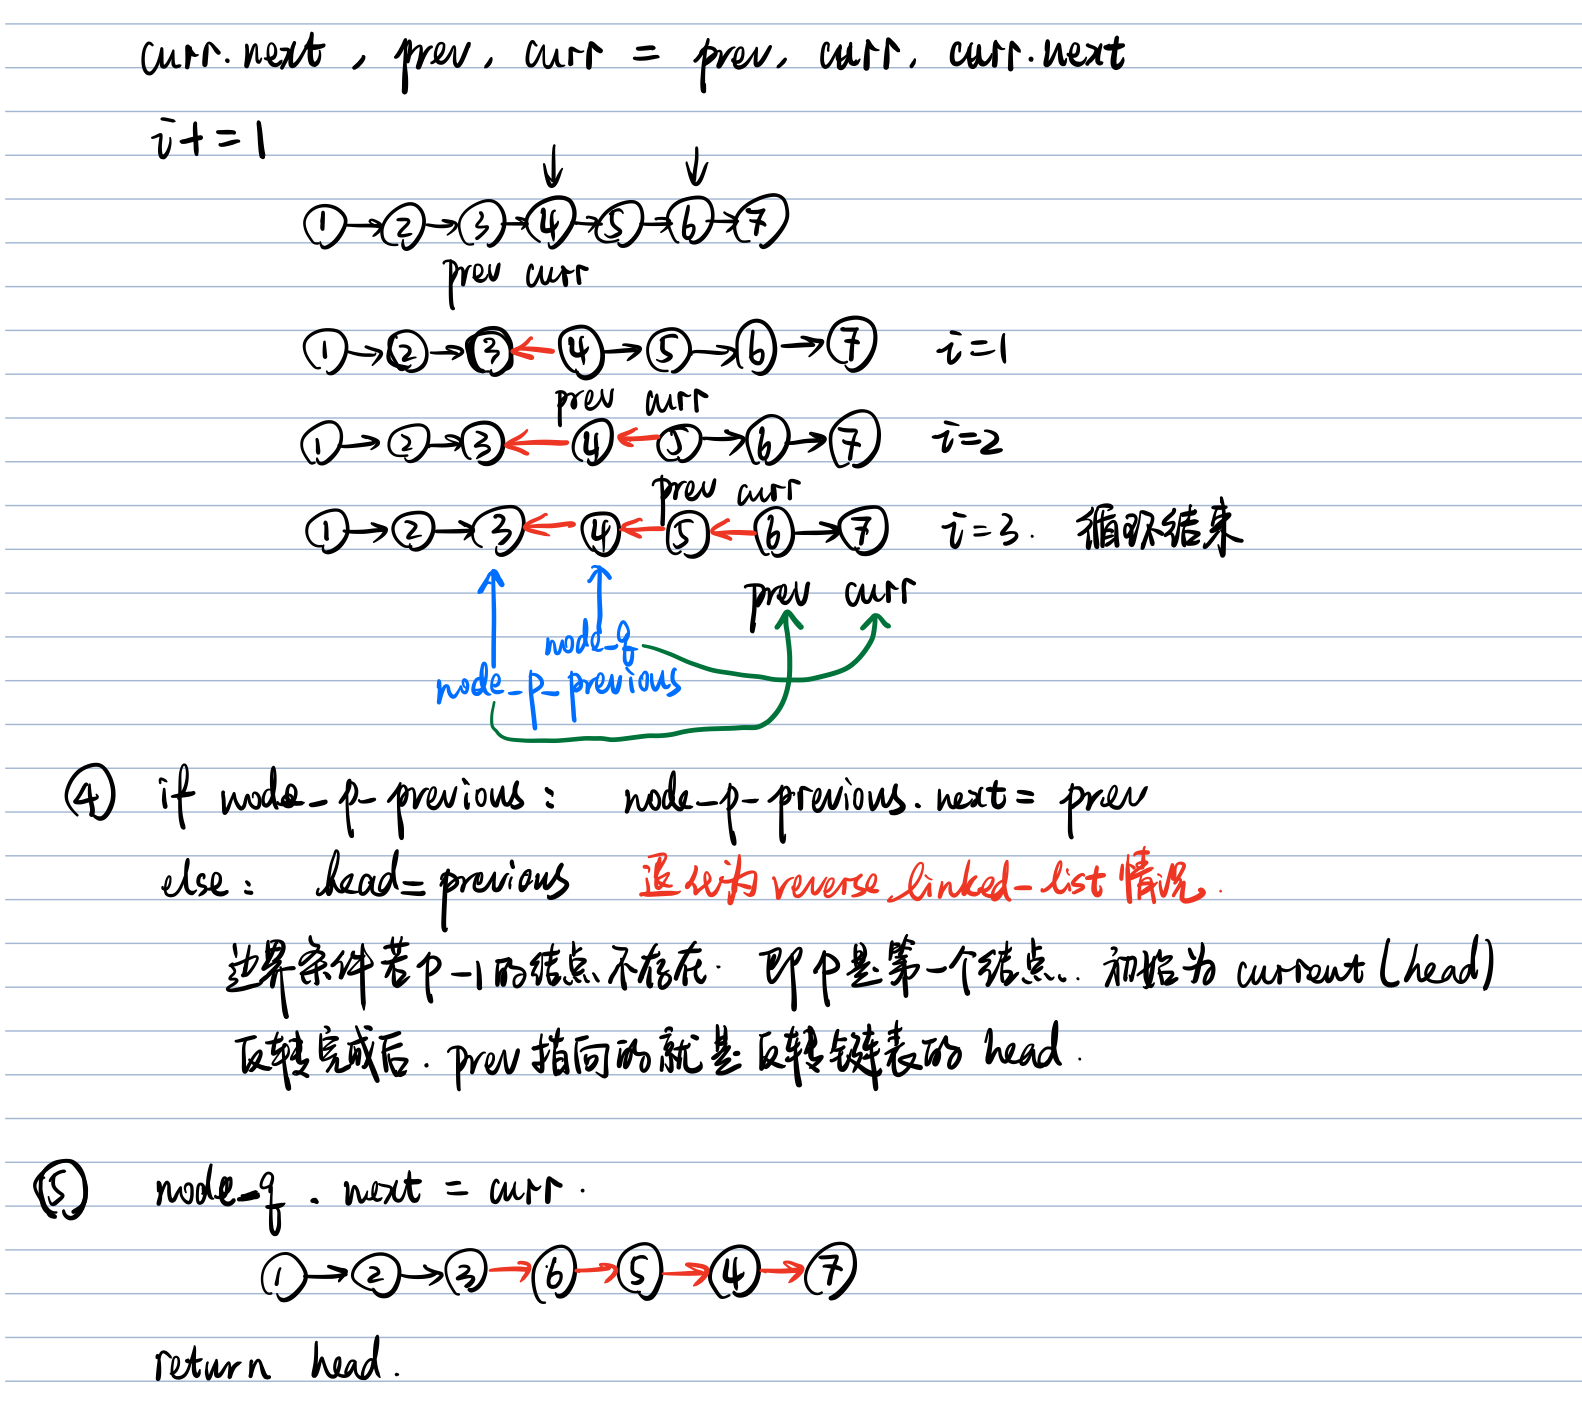 curr.next , prev, curr = prev, curr, curr.next
i+=1
↓ ↓
①→②→③→④→⑤→⑥→⑦
prev curr
①→②→③←④→⑤→⑥→⑦ i=1
prev curr
①→②→③←④←⑤→⑥→⑦ i=2
prev curr
①→②→③←④←⑤←⑥→⑦ i=3. 循环结束
prev curr
node_q
node_p_previous
④ if node_p_previous: node_p_previous.next = prev
else: head=previous 退化为 reverse linked-list 情况.
边界条件若p-1的结点不存在. 即p是第一个结点.. 初始为 current (head)
反转完成后. prev指向的就是反转链表的 head.
⑤ node_q . next = curr.
①→②→③→⑥→⑤→④→⑦
return head.